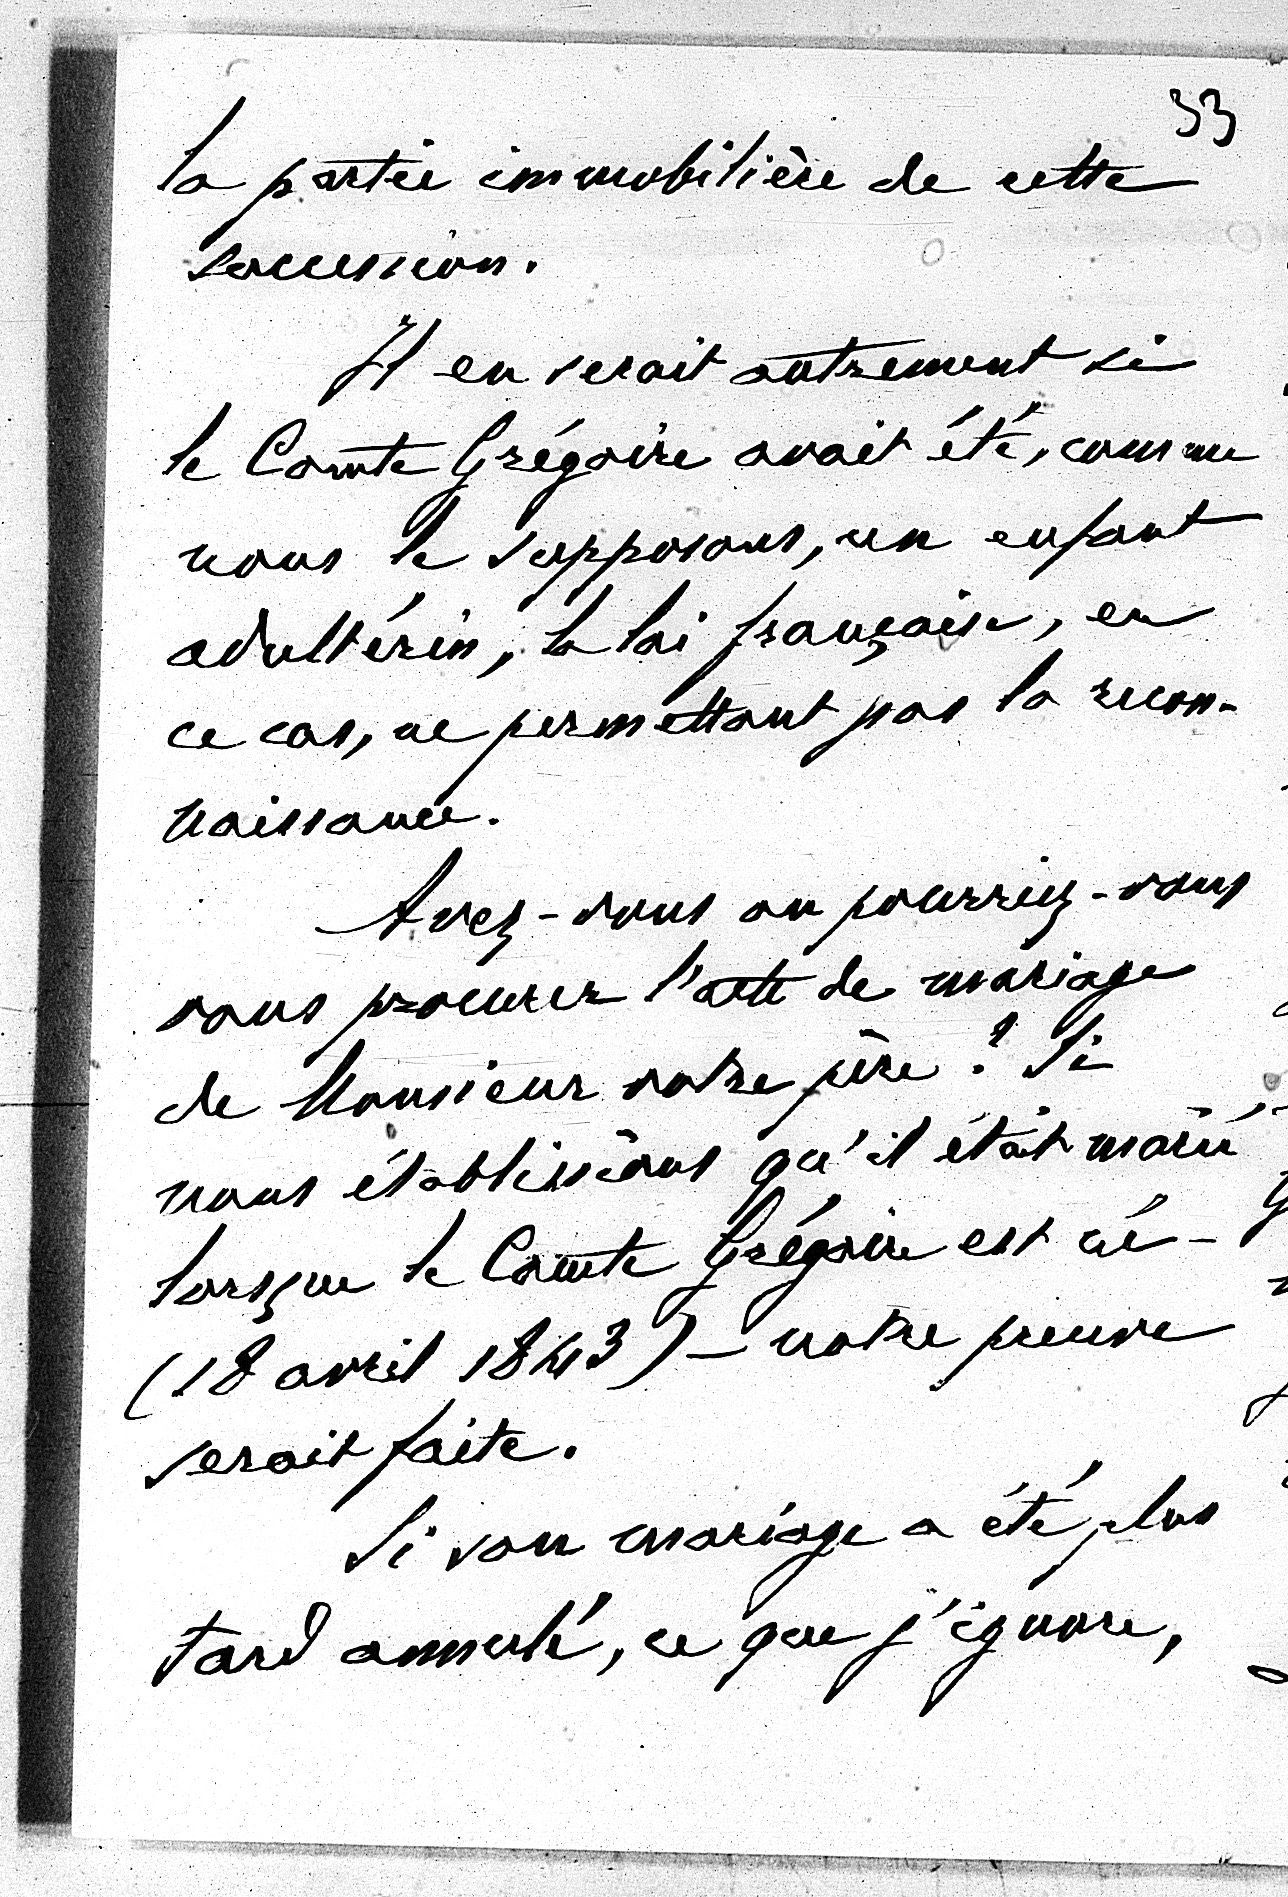 33
la partie immobilière de cette
succession.
Il en serait autrement si
le Comte Grégoire avait été, comme
nous le supposons, un enfant
adultérin, la loi française, en
ce cas, ne permettant pas la recon-
naissance.
Avez-vous ou pourriez-vous
vous procurer l'acte de mariage
de Monsieur votre père ? Si
nous établissions qu'il était marié
lorsque le Comte Grégoire est né -
(18 avril 1843) - notre preuve
serait faite.
Si son mariage a été plus
tard annulé, ce que j'ignore,